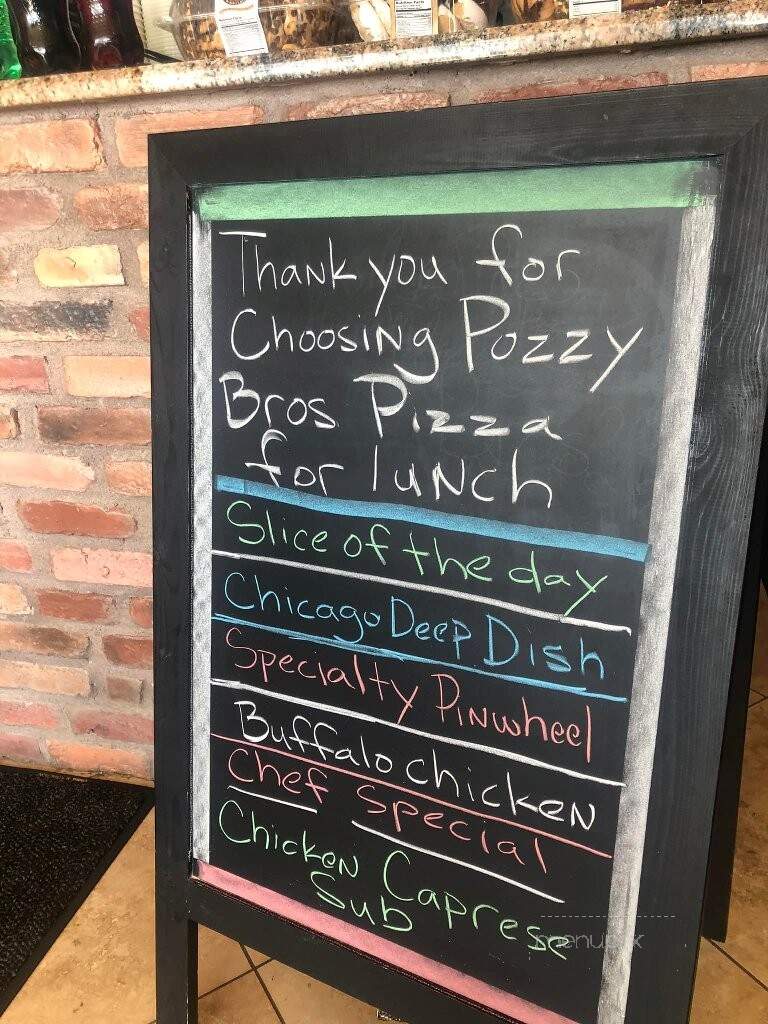 Thank you for
Choosing Pozzy
Bros Pizza
for lunch
Slice of the day
Chicago Deep Dish
Specialty Pinwheel
Buffalo chicken
Chef special
Chicken Caprese
Sub